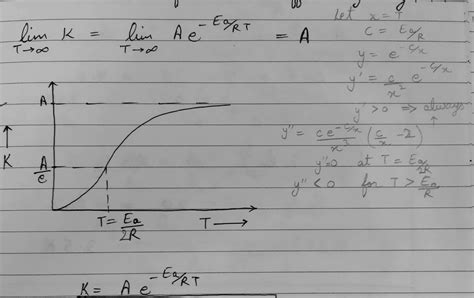 lim K = lim A e^{-Ea/RT} = A
T→∞ T→∞
let x = T
c = Ea/R
y = e^{-c/x}
y' = c/x² e^{-c/x}
y' > 0 ⇒ always ↑
y'' = ce^{-c/x}/x³ (c/x - 2)
y''=0 at T = Ea/2R
y'' < 0 for T > Ea/R
A
↑
K
A/e
T = Ea/2R
T →
K = A e^{-Ea/RT}